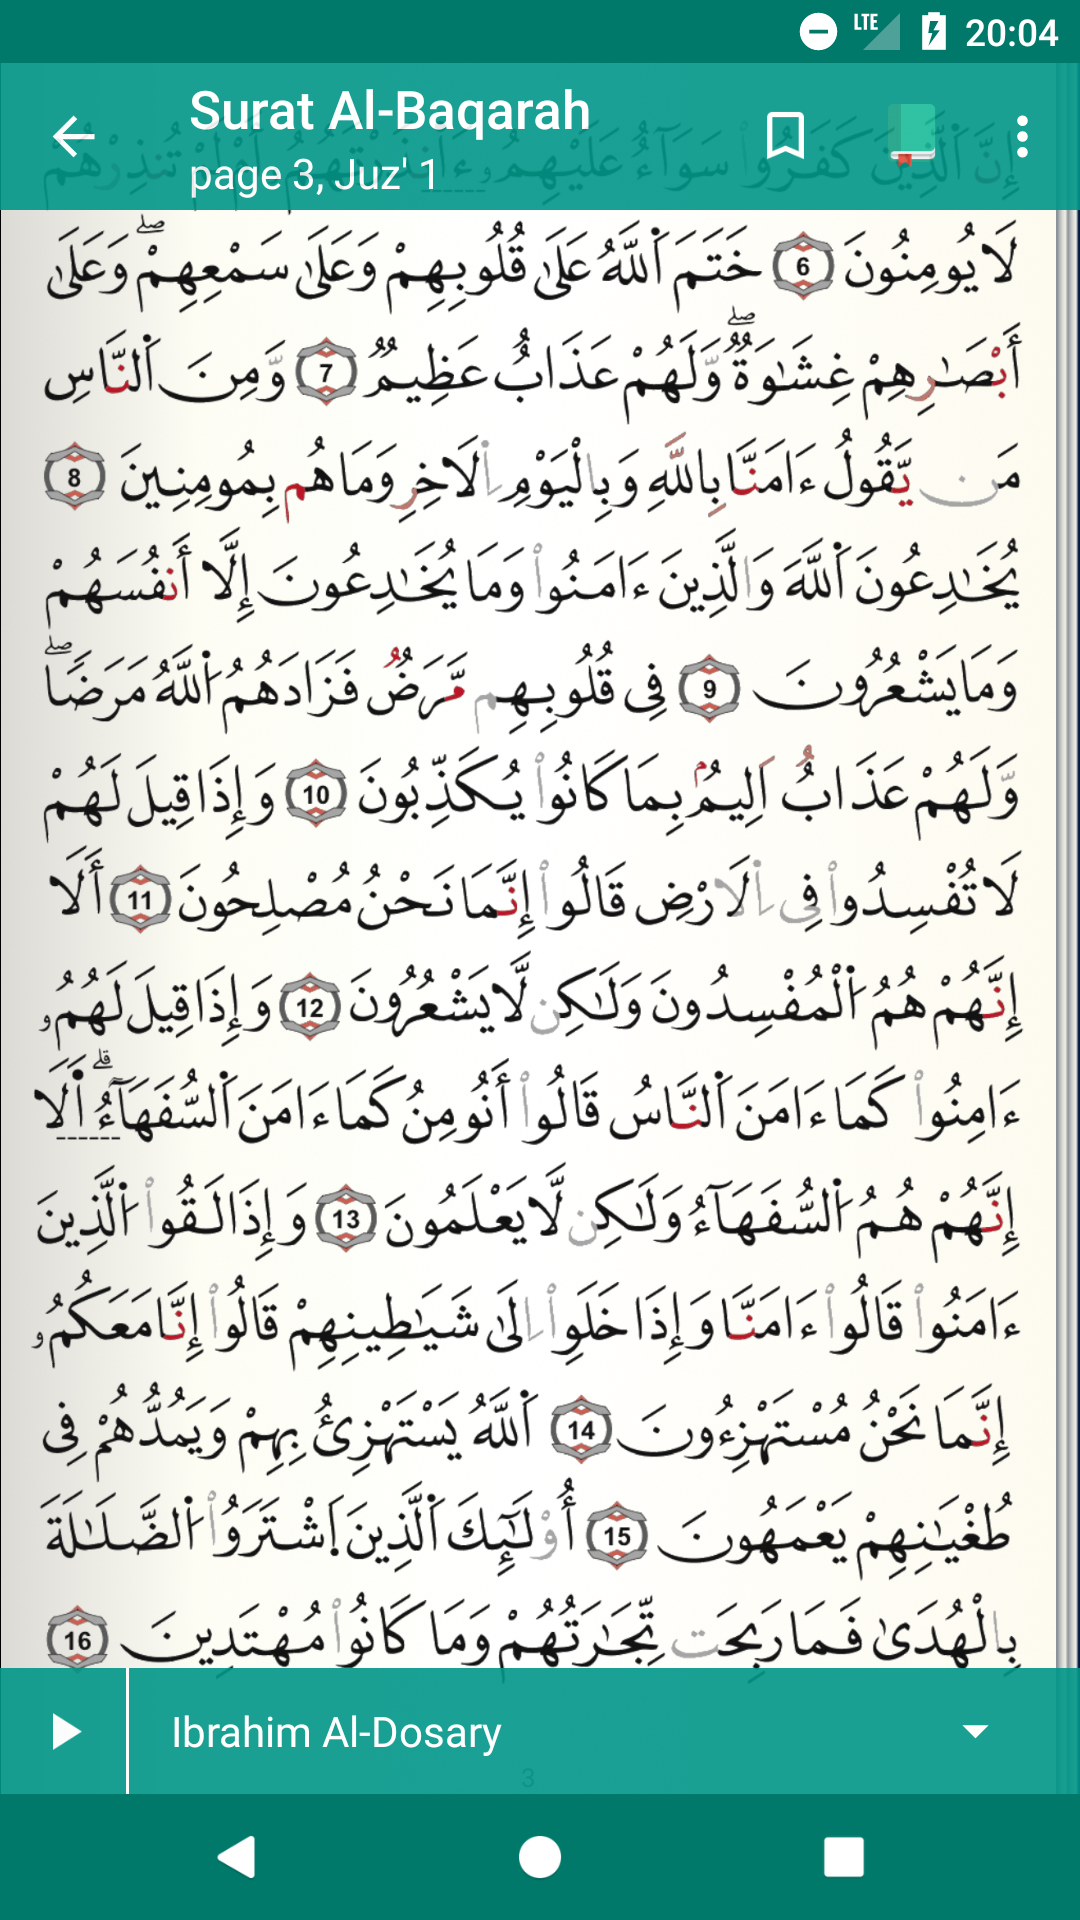 20:04 LTE
Surat Al-Baqarah
page 3, Juz' 1
إِنَّ اَ۬لذِينَ كَفَرُواْ سَوَآءٌ عَلَيْهِمُۥٓ ءَآنذَرْتَهُمُۥٓ أَمْ لَمْ تُنذِرْهُمْ
لَا يُومِنُونَ 6 خَتَمَ اَ۬للَّهُ عَلَىٰ قُلُوبِهِمْ وَعَلَىٰ سَمْعِهِمْ ۖ وَعَلَىٰ
أَبْصَٰرِهِمْ غِشَٰوَةٌ ۖ وَّلَهُمْ عَذَابٌ عَظِيمٌ 7 وَّمِنَ اَ۬لنَّاسِ
مَن يَّقُولُ ءَامَنَّا بِاللَّهِ وَبِالْيَوْمِ اِ۬لَاخِرِ وَمَا هُم بِمُومِنِينَ 8
يُخَٰدِعُونَ اَ۬للَّهَ وَالَّذِينَ ءَامَنُواْ وَمَا يُخَٰدِعُونَ إِلَّا أَنفُسَهُمْ
وَمَا يَشْعُرُونَ 9 فِى قُلُوبِهِم مَّرَضٌ فَزَادَهُمُ اُ۬للَّهُ مَرَضًا ۖ
وَّلَهُمْ عَذَابٌ اَلِيمٌۢ بِمَا كَانُواْ يُكَذِّبُونَ 10 وَإِذَا قِيلَ لَهُمْ
لَا تُفْسِدُواْ فِى اِ۬لَارْضِ قَالُواْ إِنَّمَا نَحْنُ مُصْلِحُونَ 11 أَلَا
إِنَّهُمْ هُمُ اُ۬لْمُفْسِدُونَ وَلَٰكِن لَّا يَشْعُرُونَ 12 وَإِذَا قِيلَ لَهُمُۥ
ءَامِنُواْ كَمَا ءَامَنَ اَ۬لنَّاسُ قَالُواْ أَنُومِنُ كَمَا ءَامَنَ اَ۬لسُّفَهَآءُ ۗ اَلَا
إِنَّهُمْ هُمُ اُ۬لسُّفَهَآءُ وَلَٰكِن لَّا يَعْلَمُونَ 13 وَإِذَا لَقُواْ اُ۬لَّذِينَ
ءَامَنُواْ قَالُواْ ءَامَنَّا وَإِذَا خَلَوِاْ اِلَىٰ شَيَٰطِينِهِمْ قَالُواْ إِنَّا مَعَكُمُۥ
إِنَّمَا نَحْنُ مُسْتَهْزِءُونَ 14 اَ۬للَّهُ يَسْتَهْزِئُ بِهِمْ وَيَمُدُّهُمْ فِى
طُغْيَٰنِهِمْ يَعْمَهُونَ 15 أُوْلَٰٓئِكَ اَ۬لَّذِينَ اَ۪شْتَرَوُاْ اُ۬لضَّلَٰلَةَ
بِالْهُدَىٰ فَمَا رَبِحَت تِّجَٰرَتُهُمْ وَمَا كَانُواْ مُهْتَدِينَ 16
Ibrahim Al-Dosary
3